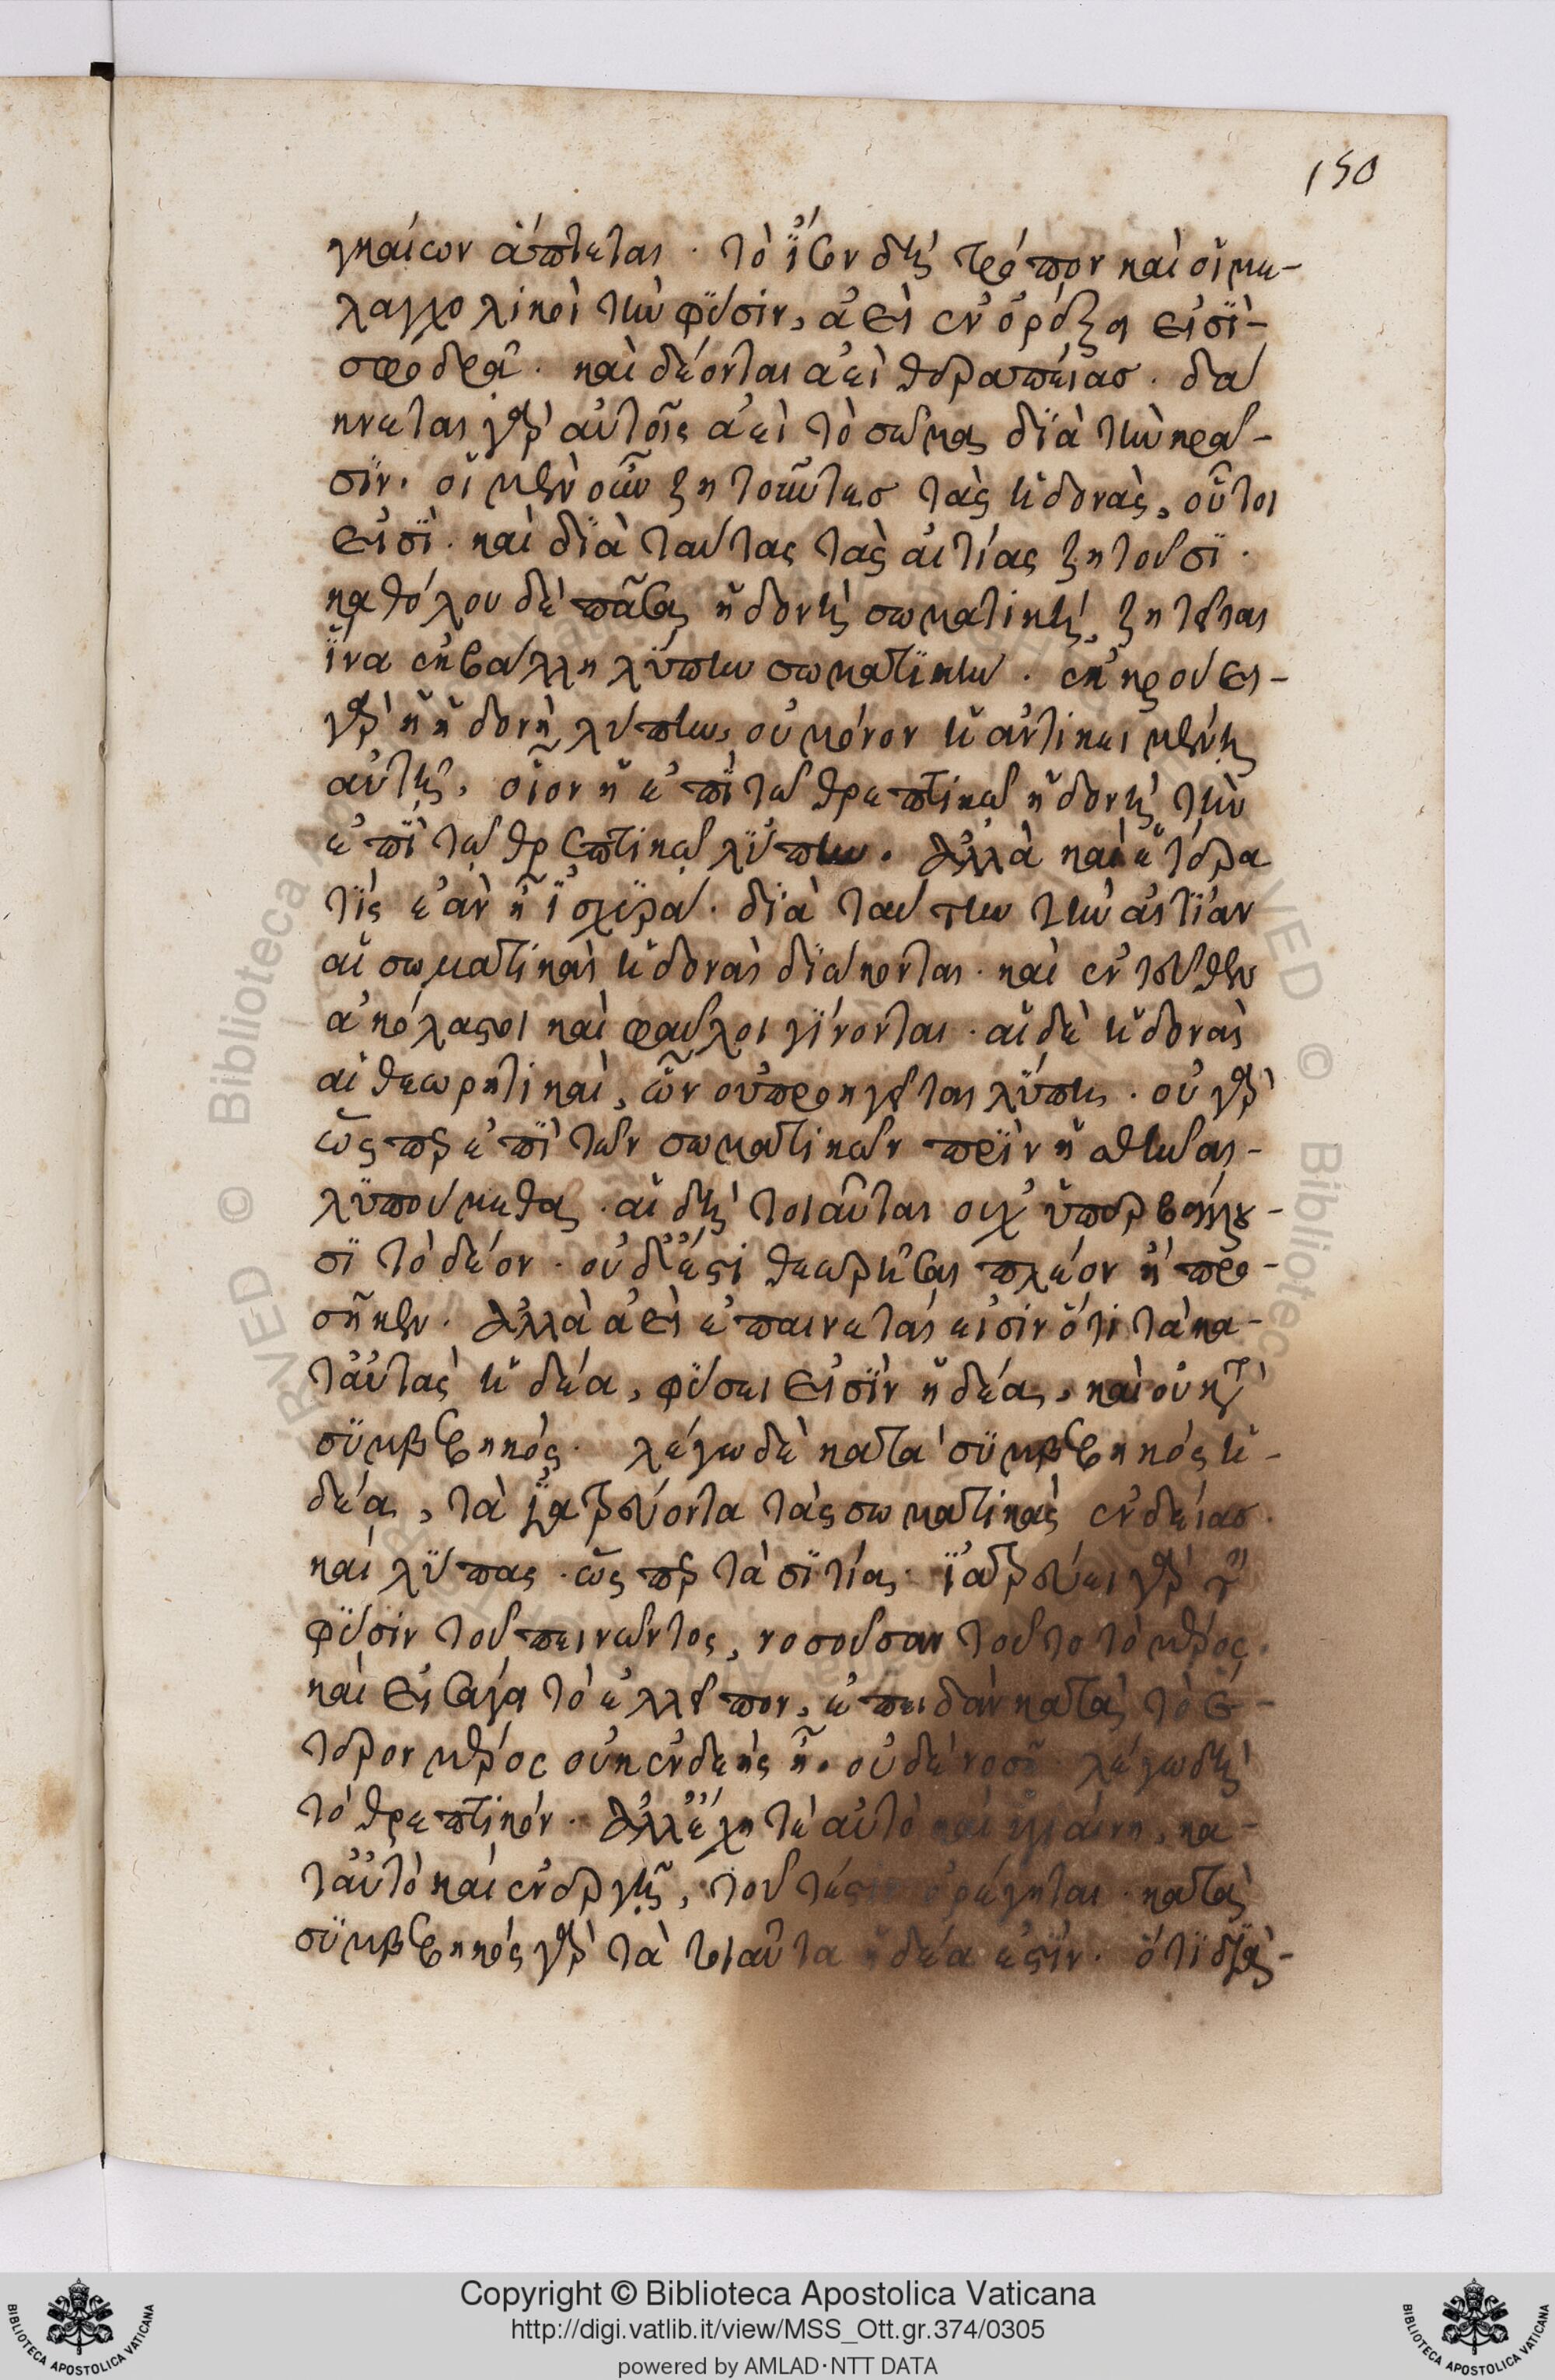 150
γκαίων ἅπτεται · τὸ ἴσον δὴ τρόπον καὶ οἱ με-
λαγχολικοὶ τὴν φύσιν, ἀεὶ ἐν ὀρέξει εἰσὶ-
σφόδρα · καὶ δέονται ἀεὶ θεραπείας · δά
κνεται γὰρ αὐτοῖς ἀεὶ τὸ σῶμα διὰ τὴν κρᾶ-
σιν · οἱ μὲν οὖν ζητοῦντες τὰς ἡδονὰς, οὗτοι
εἰσὶ · καὶ διὰ ταύτας τὰς αἰτίας ζητοῦσι ·
καθόλου δὲ πᾶσα ἡδονὴ σωματικὴ, ζητεῖται
ἵνα ἐκβάλλη λύπην σωματικήν · ἐκκρούει-
γὰρ ἡ ἡδονὴ λύπην, οὐ μόνον ἡ ἀντικειμένη
αὐτῆ, οἷον ἡ ἐπὶ τῶ θρεπτικῶ ἡδονὴ τὴν
ἐπὶ τῶ θρεπτικῶ λύπην · ἀλλὰ καὶ ἑτέρα
τις ἐὰν ἦ ἰσχυρά · διὰ ταύτην τὴν αἰτίαν
αἱ σωματικαὶ ἡδοναὶ διώκονται · καὶ ἐντεῦθεν
ἀκόλαστοι καὶ φαῦλοι γίνονται · αἱ δὲ ἡδοναὶ
αἱ θεωρητικαὶ, ὧν οὐ προηγεῖται λύπη · οὐ γὰρ
ὥσπερ ἐπὶ τῶν σωματικῶν πρὶν ἡσθῆναι-
λυπούμεθα · αἱ δὴ τοιαῦται οὐχ ὑπερβαίνου-
σι τὸ δέον · οὐδ' ἔστι θεωρῆσαι πλέον ἢ προ-
σῆκεν · ἀλλὰ ἀεὶ ἐπαινεταί εἰσιν ὅτι τὰ κα-
τ' αὐτὰς ἡδέα, φύσει εἰσὶν ἡδέα, καὶ οὐ κατὰ
συμβεβηκός · λέγω δὲ κατὰ συμβεβηκός ἡ-
δέα, τὰ ἰατρεύοντα τὰς σωματικὰς ἐνδείας ·
καὶ λύπας · ὥσπερ τὰ σιτία · ἰατρεύει γὰρ τὴν
φύσιν τοῦ πεινῶντος, νοσοῦσαν τοῦτο τὸ μέρος ·
καὶ εἰσάγει τὸ ἐλλεῖπον, ἐπειδὰν κατὰ τὸ ἕ-
τερον μέρος οὐκ ἐνδεὴς ἦ · οὐδὲ νοσῆ λέγω δὴ
τὸ θρεπτικόν · ἀλλ' ἔχη τὲ αὐτὸ καὶ ὑγιαίνη, κα-
τ' αὐτὸ καὶ ἐνεργῆ, τουτέστιν ὀρέγηται · κατὰ
συμβεβηκός γὰρ τὰ τοιαῦτα ἡδέα ἐστίν · ὅτι διὰ-
Copyright © Biblioteca Apostolica Vaticana
http://digi.vatlib.it/view/MSS_Ott.gr.374/0305
powered by AMLAD·NTT DATA
BIBLIOTECA APOSTOLICA VATICANA
BIBLIOTECA APOSTOLICA VATICANA